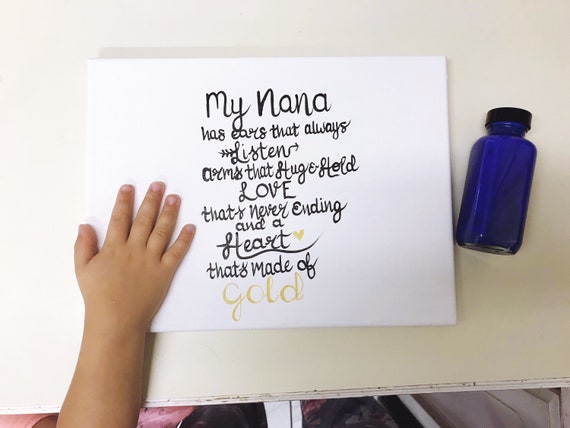 My Nana
has ears that always
Listen
arms that Hug & Hold
LOVE
that's Never Ending
and a
Heart
that's Made of
gold